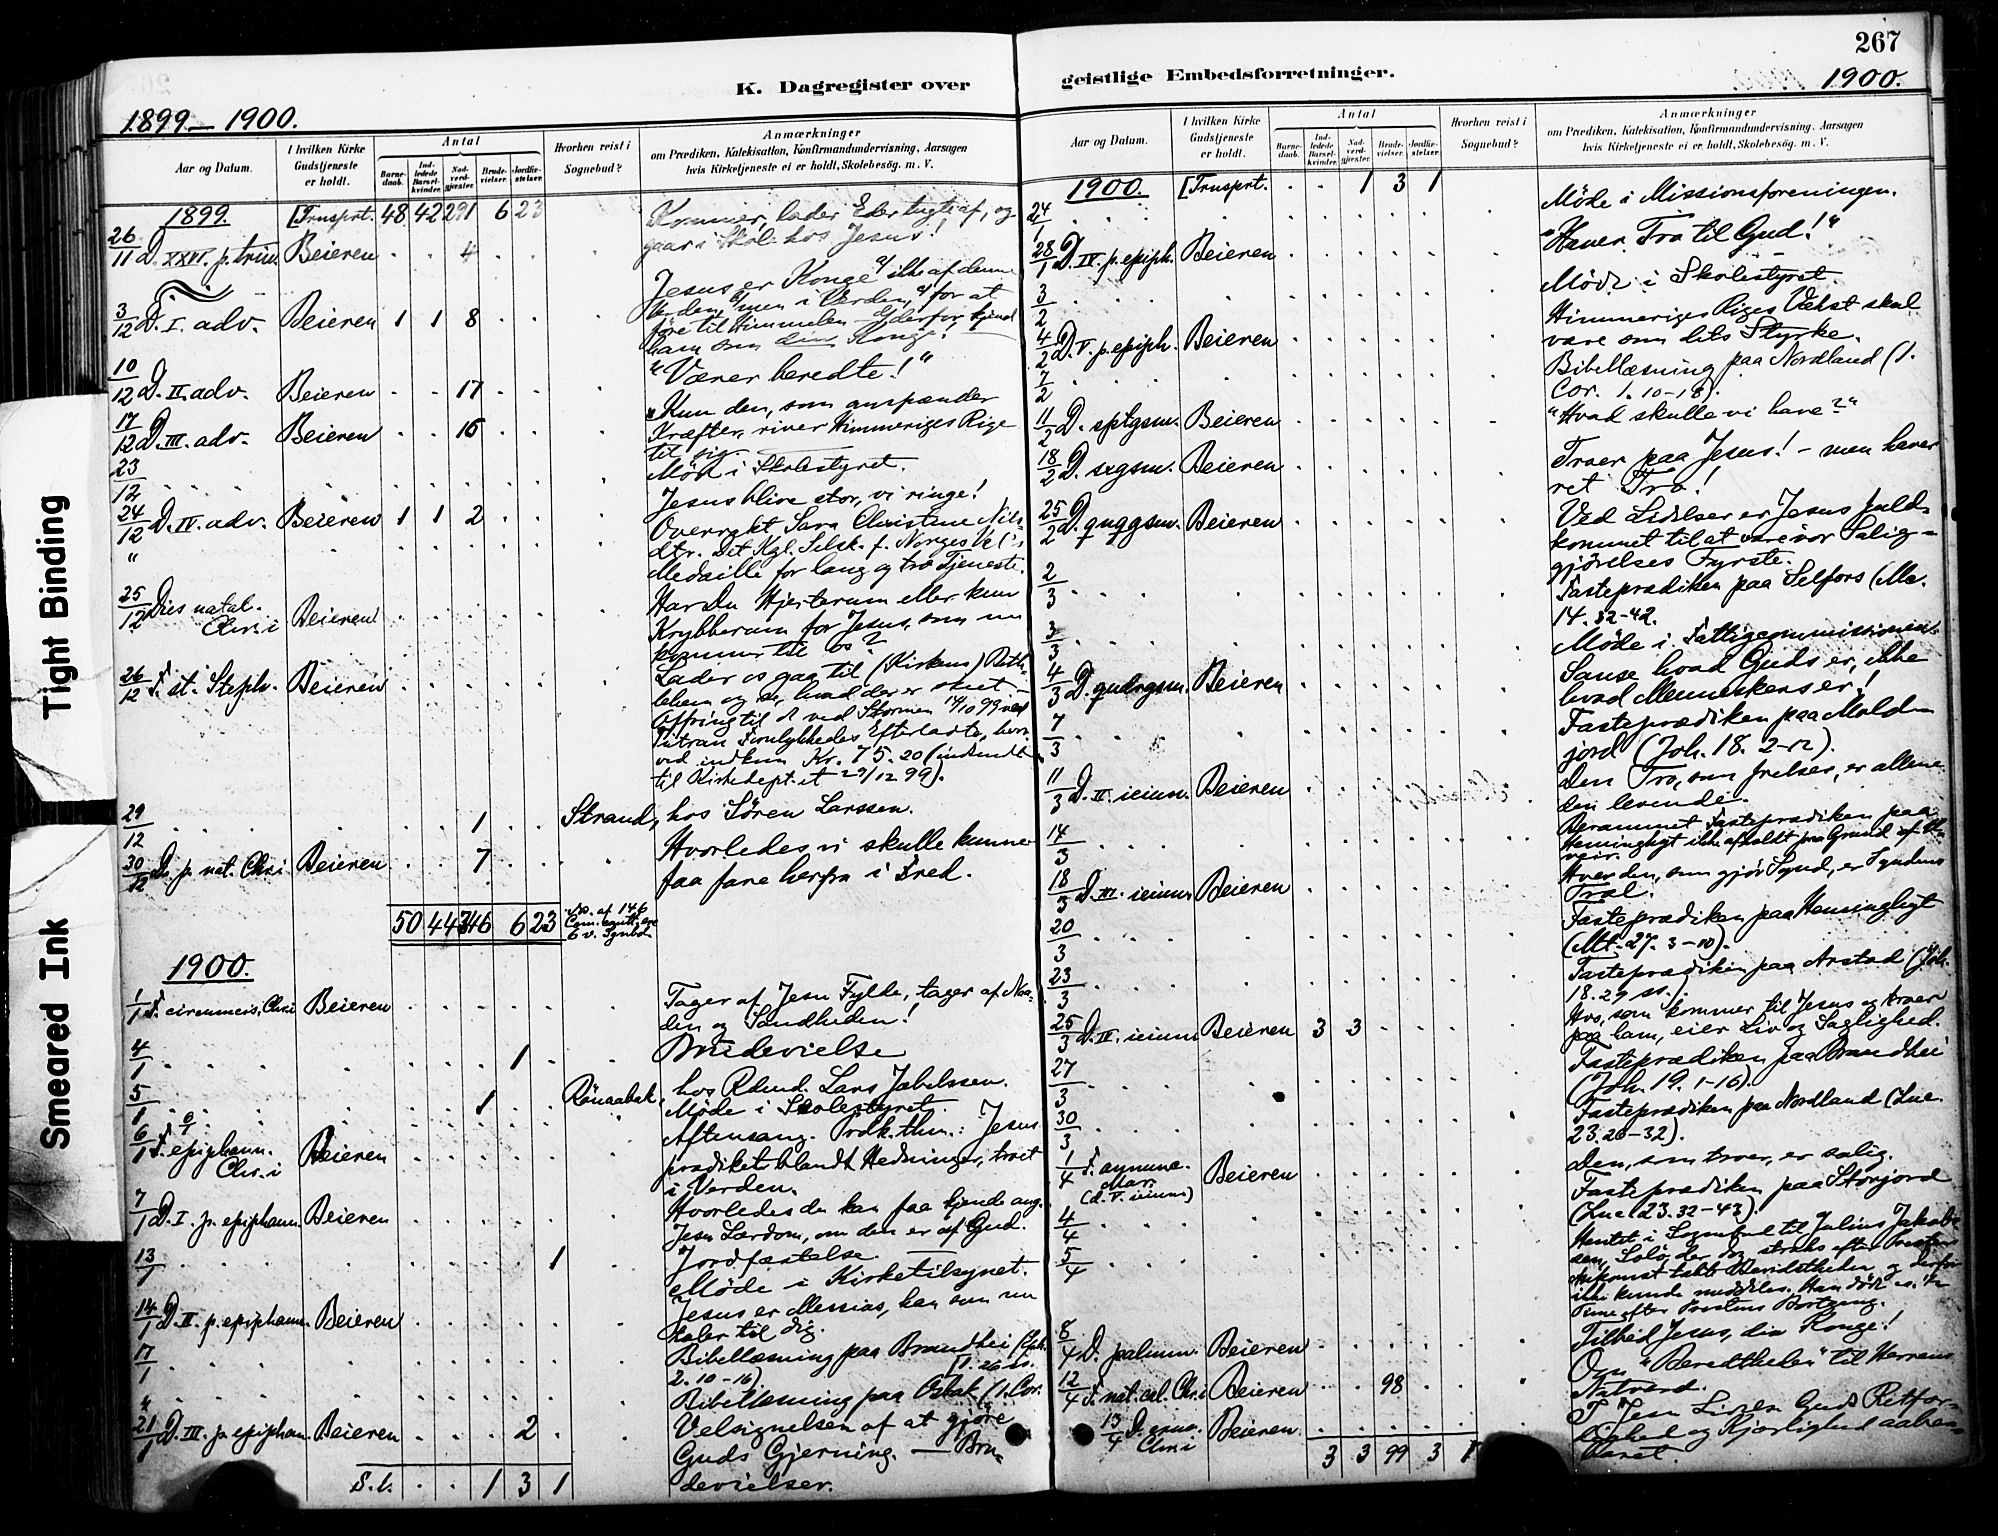 267
K. Dagregister over
geistlige Embedsforretninger.
1899 – 1900.
1900.
Aar og Datum.
I hvilken Kirke Gudstjeneste er holdt.
Antal
Barnedaab.
Indledede Barselkvinder.
Nadverdgjester.
Brudevielser.
Jordfæstelser.
Hvorhen reist i Sognebud?
Anmærkninger
om Prædiken, Katekisation, Konfirmandundervisning, Aarsagen
hvis Kirketjeneste ei er holdt, Skolebesög. m. V.
1899. [Trnsprt. 48 42 291 6 23
Kommer, lader Eder tugte af, og
gaar i Skole hos Jesus!
26/11 D. XXVI. p. trin. Beieren 4
Jesus er Konge ikke af denne
Verden, men i Verden, for at
føre til Himmelen – Eder for kjend
ham som din Konge!
3/12 D. I. adv. Beieren 1 1 8
"Værer beredte!"
10/12 D. II. adv. Beieren 17
Kun den, som anspænder
Kræfter, river Himmeriges Rige
til sig.
17/12 D. III. adv. Beieren 16
23/12 Møde i Skolestyret.
Jesus blive stor, vi ringe!
24/12 D. IV. adv. Beieren 1 1 2
" Overrakt Sara Christine Nils-
dtr. Det Kgl. Selsk. f. Norges Vel's
Medaille for lang og tro Tjeneste.
25/12 Dies natal. Chr.i Beieren
Har Du Hjerterum eller kun
Krybberum for Jesus, som nu
kommer til os?
26/12 F. st. Steph. Beieren
Lader os gaa til (Kirkens) Beth-
lehem og se, hvad der er skeet. –
Offring til de ved Stormen 14/10 99 ved
Titran Forulykkedes Efterladte, hvor-
ved indkom Kr. 75.20 (indsendt
til Kirkedept.et 29/12 99).
29/12 1 Strand, hos Søren Larssen.
30/12 D. p. nat. Chr.i Beieren 7
Hvorledes vi skulle kunne
faa fare herfra i Fred.
50 44 346 6 23
1900.
1/1 F. circumcis. Chr.i Beieren
Tager af Jesu Fylde, tager af Naa-
den og Sandheden!
4/1 1 Brudevielse
5/1 1 hos Lars Jakobssen.
Møde i Skolestyret.
6/1 F. epiphann. Chr.i Beieren
Aftensang. Præk.thm.: Jesus
prædiket blandt Hedninger, troet
i Verden.
7/1 D. I. p. epiphann. Beieren
Hvorledes du kan faa kjende ang.
Jesu Lærdom, om den er af Gud.
13/1 1 Jordfæstelse
Møde i Kirketilsynet.
14/1 D. II. p. epiphann. Beieren
Jesus er Messias, han som nu
taler til dig.
17/1 Bibellæsning paa Brandhei (Eph.
2. 10-16).
" Bibellæsning paa Osbak (1. Cor.
1. 26 ss.
21/1 D. III. p. epiphan. Beieren 2
Velsignelsen af at gjøre
Guds Gjerning. — Bru-
devielser.
S. l. 1 3 1
1900. [Trnsprt. 1 3 1
24/1 Møde i Missionsforeningen.
28/1 D. IV. p. epiph. Beieren
"Haver Tro til Gud!"
3/2 Møde i Skolestyret
4/2 D. V. p. epiph. Beieren
Himmeriges Riges Vækst skal
være som dets Styrke.
7/2 Bibellæsning paa Nordland (1.
Cor. 1. 10-18).
11/2 D. sptgsm. Beieren
"Hvad skulle vi have?"
18/2 D. sxgsm. Beieren
Troer paa Jesus! – men haver
ret Tro!
25/2 D. quqgsm. Beieren
Ved Lidelser er Jesus fuld-
kommet til at være vor Salig-
gjørelses Fyrste.
2/3 Fasteprædiken paa Selfors (Mc.
14. 32-42.
3/3 Møde i Fattigcommissionen.
4/3 D. qudrgsm. Beieren
Sanse hvad Guds er, ikke
hvad Menneskens er!
7/3 Fasteprædiken paa Mold-
jord (Joh. 18. 2-12).
11/3 D. II. ieiun. Beieren
Den Tro, som frelser, er allene
den levende.
14/3 Berammet Fasteprædiken paa
Hemingligt ikke afholdt paa Grund af U-
veir.
18/3 D. III. ieiunn. Beieren
Hver den, som gjør Synd, er Syndens
Træl.
20/3 Fasteprædiken paa Hemingligt
(Mt. 27. 3-10).
23/3 Fasteprædiken paa Arstad (Joh.
18. 29 ss.)
25/3 D. IV. ieiunn. Beieren 3 3
Hvo, som kommer til Jesus og troer
paa ham, eier Liv og Saglighed.
27/3 Fasteprædiken paa Brandhei
(Joh. 19. 1-16).
30/3 Fasteprædiken paa Nordland (Luc.
23. 26-32).
1/4 F. annunc. Mar. (d. V. ieiunn) Beieren
Den, som troer, er salig.
4/4 Fasteprædiken paa Storjord
(Luc. 23. 32-43).
5/4 Hentet i Sognebud til Julius Jakob-
sen, der dog straks efter Prestens
Ankomst tabte Bevidstheden og derfor
ikke kunde meddeles. Han døde ca. en
Time efter Prestens Bortgang.
8/4 D. palmm. Beieren
Tilbed Jesus, din Konge!
12/4 F. nat. cal. Chr.i Beieren 98
Om "Beredthelsen" til Herrens
Natverd.
13/4 D. cruc. Chr.i Beieren
I Jesu Lidelse Guds Retfær-
dighed og Kjærlighed aaben-
baret.
3 3 99 3 1
Tight Binding
Smeared Ink